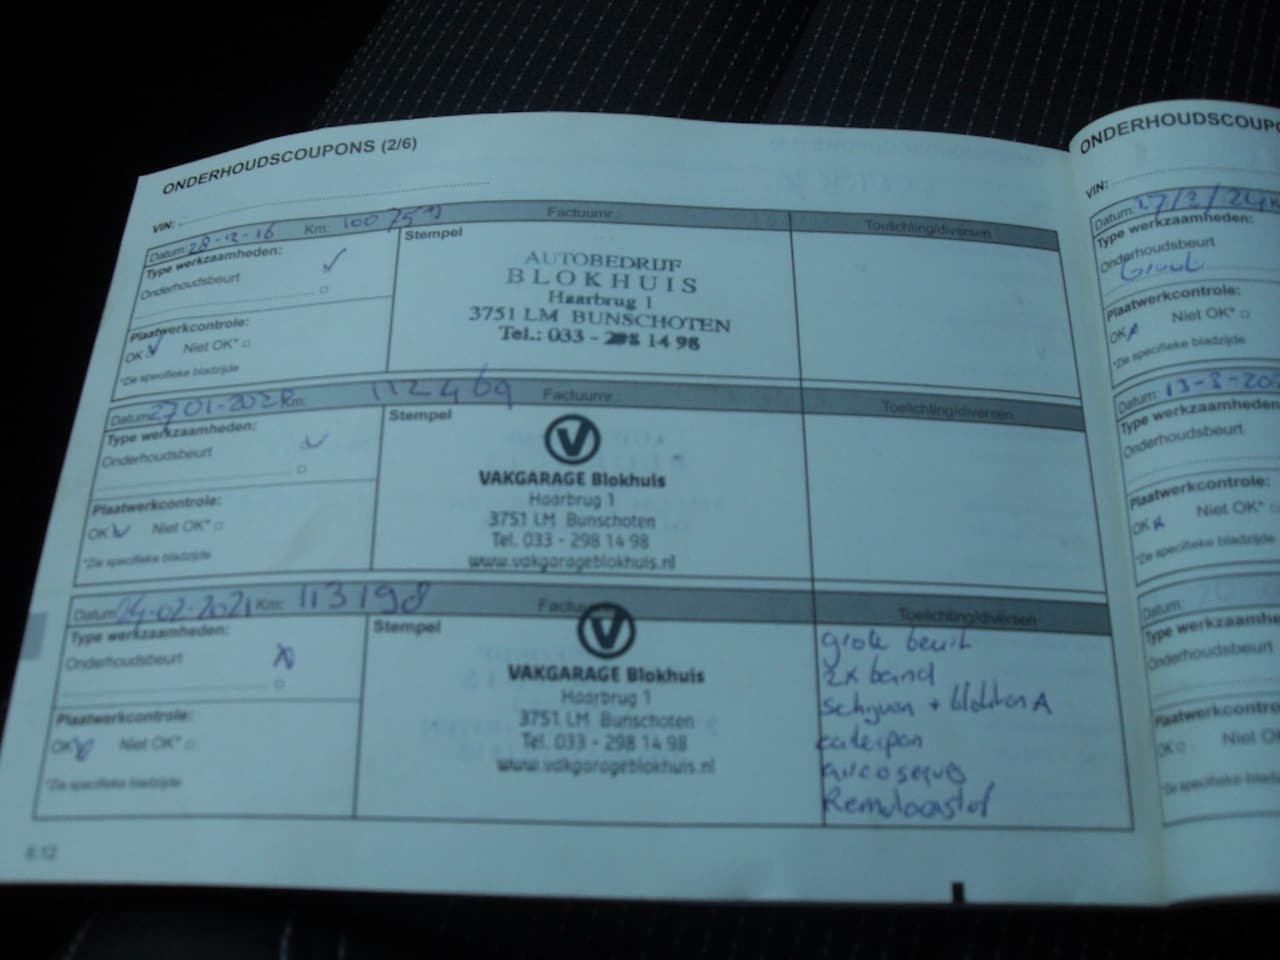 ONDERHOUDSCOUPONS (2/6)
VIN:
Datum: 28-12-16 Km: 100759 Factuurnr.: Toelichting/diversen
Type werkzaamheden:
Onderhoudsbeurt
Stempel
AUTOBEDRIJF
BLOKHUIS
Haarbrug 1
3751 LM BUNSCHOTEN
Tel.: 033 - 298 14 98
Plaatwerkcontrole:
OK Niet OK*
*De specifieke bladzijde
Datum: 27 01-2020 Km: 112469 Factuurnr.: Toelichting/diversen
Type werkzaamheden:
Onderhoudsbeurt
Stempel
VAKGARAGE Blokhuis
Haarbrug 1
3751 LM Bunschoten
Tel. 033 - 298 14 98
www.vakgarageblokhuis.nl
Plaatwerkcontrole:
OK Niet OK*
*De specifieke bladzijde
Datum: 24-02-2021 Km: 113198 Toelichting/diversen
Type werkzaamheden:
Onderhoudsbeurt
Stempel
VAKGARAGE Blokhuis
Haarbrug 1
3751 LM Bunschoten
Tel. 033 - 298 14 98
www.vakgarageblokhuis.nl
Plaatwerkcontrole:
OK Niet OK*
*De specifieke bladzijde
grote beurt
2x band
Schijven + blokken A
carterpan
aircoservice
Remvloeistof
6.12
ONDERHOUDSCOUPO
VIN:
Datum: 27/2/24
Type werkzaamheden:
Onderhoudsbeurt
Plaatwerkcontrole:
OK Niet OK*
*De specifieke bladzijde
Datum: 13-3-20
Type werkzaamheden
Onderhoudsbeurt
Plaatwerkcontrole:
OK Niet OK*
*De specifieke bladzijde
Datum:
Type werkzaamhe
Onderhoudsbeurt
Plaatwerkcontro
OK Niet OK
*De specifieke bladz